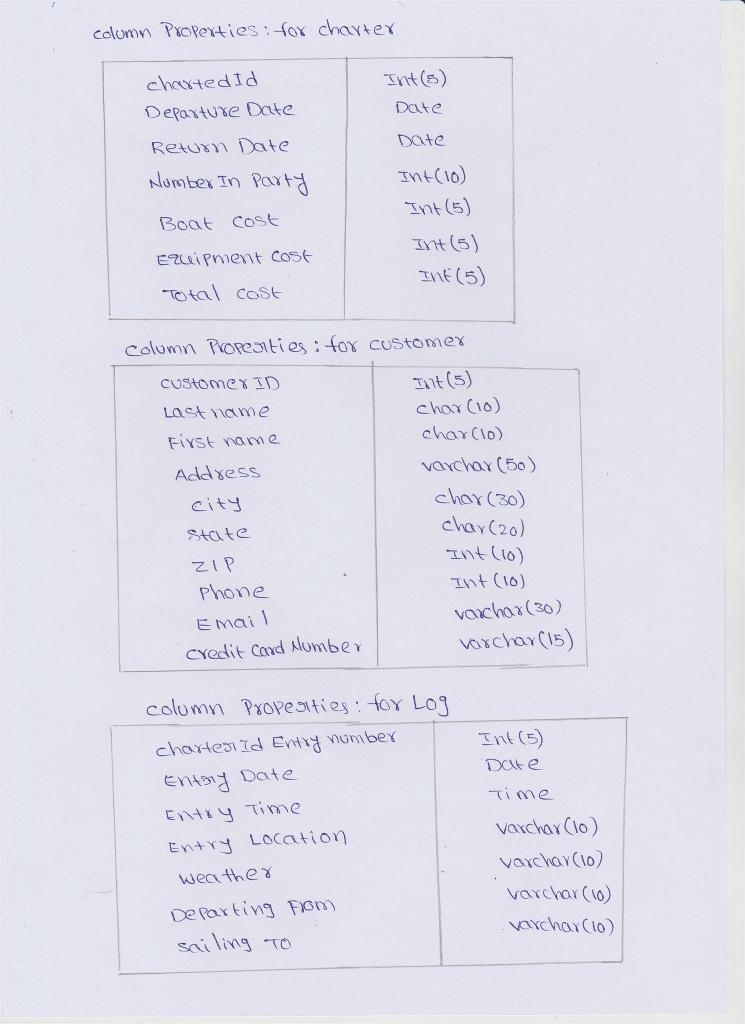 column Properties: for charter
chartedId Int(5)
Departure Date Date
Return Date Date
Number In Party Int(10)
Boat cost Int(5)
Equipment cost Int(5)
Total cost Int(5)
column Properties: for customer
customer ID Int(5)
Last name char(10)
First name char(10)
Address varchar(50)
city char(30)
state char(20)
ZIP Int(10)
Phone Int(10)
Email varchar(30)
credit Card Number varchar(15)
column Properties: for Log
charterId Entry number Int(5)
Entry Date Date
Entry Time Time
Entry Location varchar(10)
weather varchar(10)
Departing From varchar(10)
sailing To varchar(10)